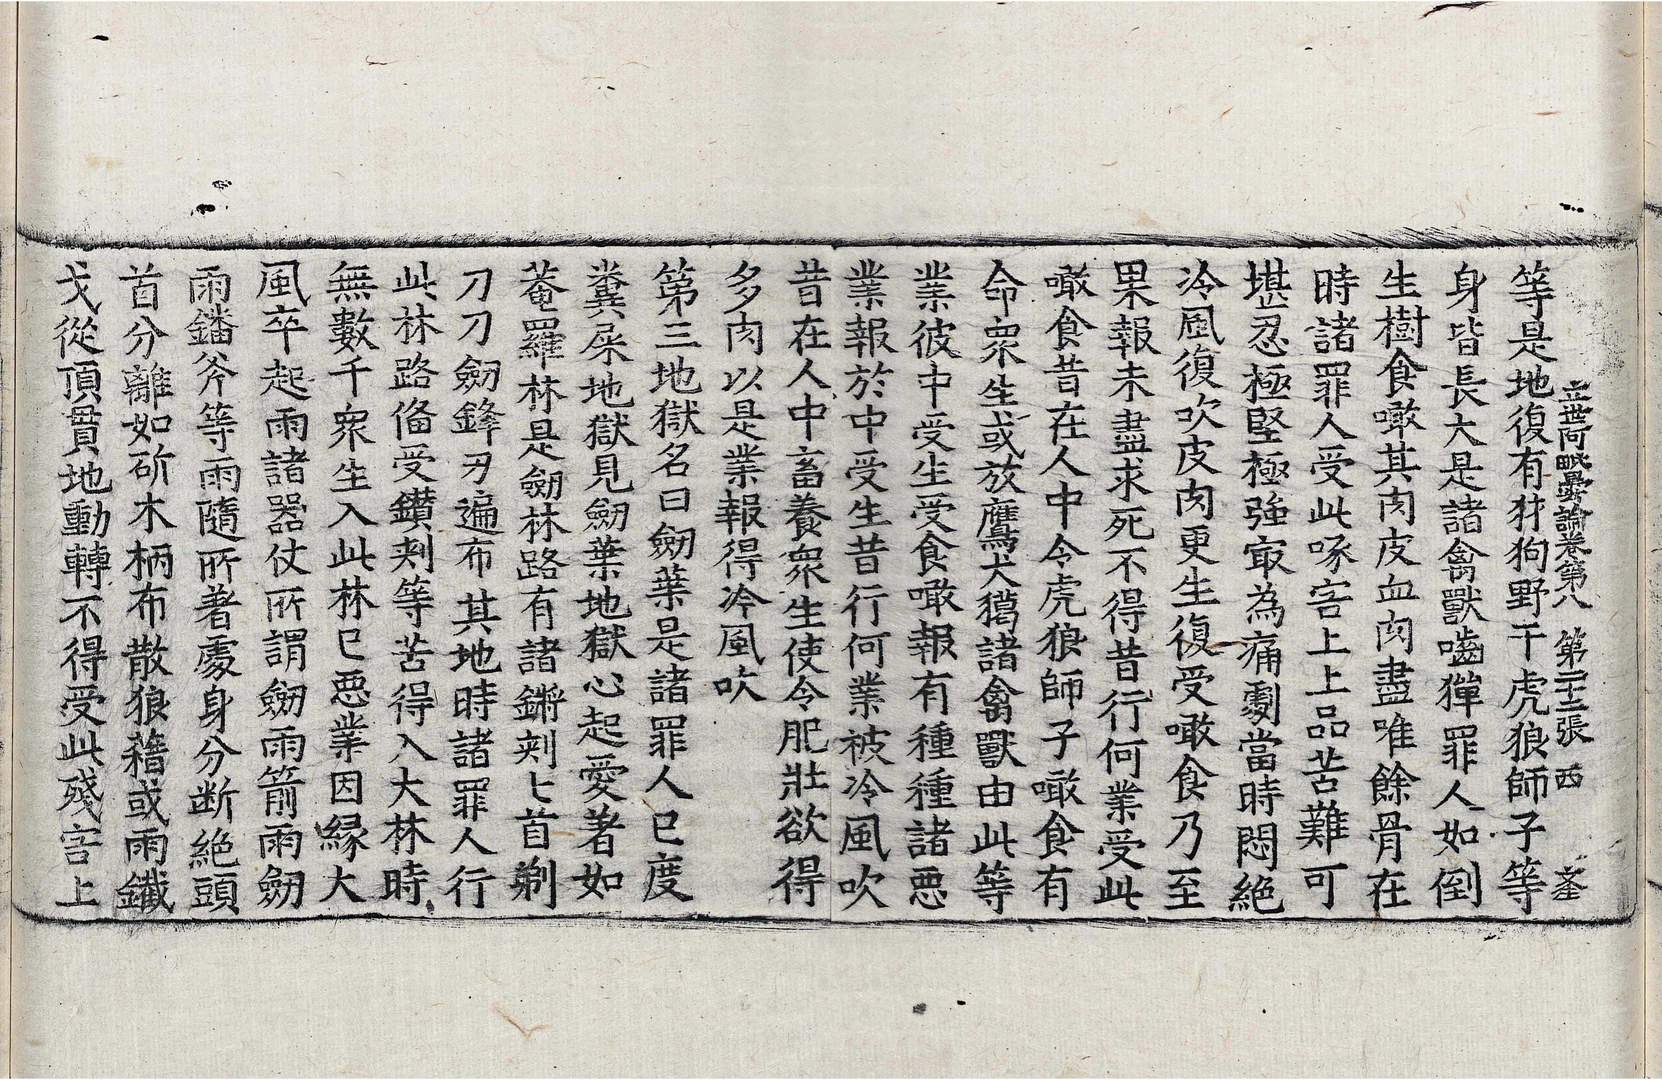 立世阿毗曇論卷第八 第二十三張 西
等是地復有犲狗野干虎狼師子等
身皆長大是諸禽獸嚙𤛓罪人如倒
生樹食噉其肉皮血肉盡唯餘骨在
時諸罪人受此啄害上上品苦難可
堪忍極堅極強㝡為痛劇當時悶絶
冷風復吹皮肉更生復受噉食乃至
果報未盡求死不得昔行何業受此
噉食昔在人中令虎狼師子噉食有
命衆生或放鷹犬獦諸禽獸由此等
業彼中受生受食噉報有種種諸惡
業報於中受生昔行何業被冷風吹
昔在人中畜養衆生使令肥壯欲得
多肉以是業報得冷風吹
第三地獄名曰劒葉是諸罪人已度
糞屎地獄見劒葉地獄心起愛著如
菴羅林是劒林路有諸鏘刾匕首剃
刀刀劒鋒刃遍布其地時諸罪人行
此林路俻受鑽刾等苦得入大林時
無數千衆生入此林已惡業因緣大
風卒起雨諸器仗所謂劒雨箭雨劒
雨鐇斧等雨隨所著處身分断絶頭
首分離如斫木柄布散狼藉或雨鐵
戈從頂貫地動轉不得受此殘害上